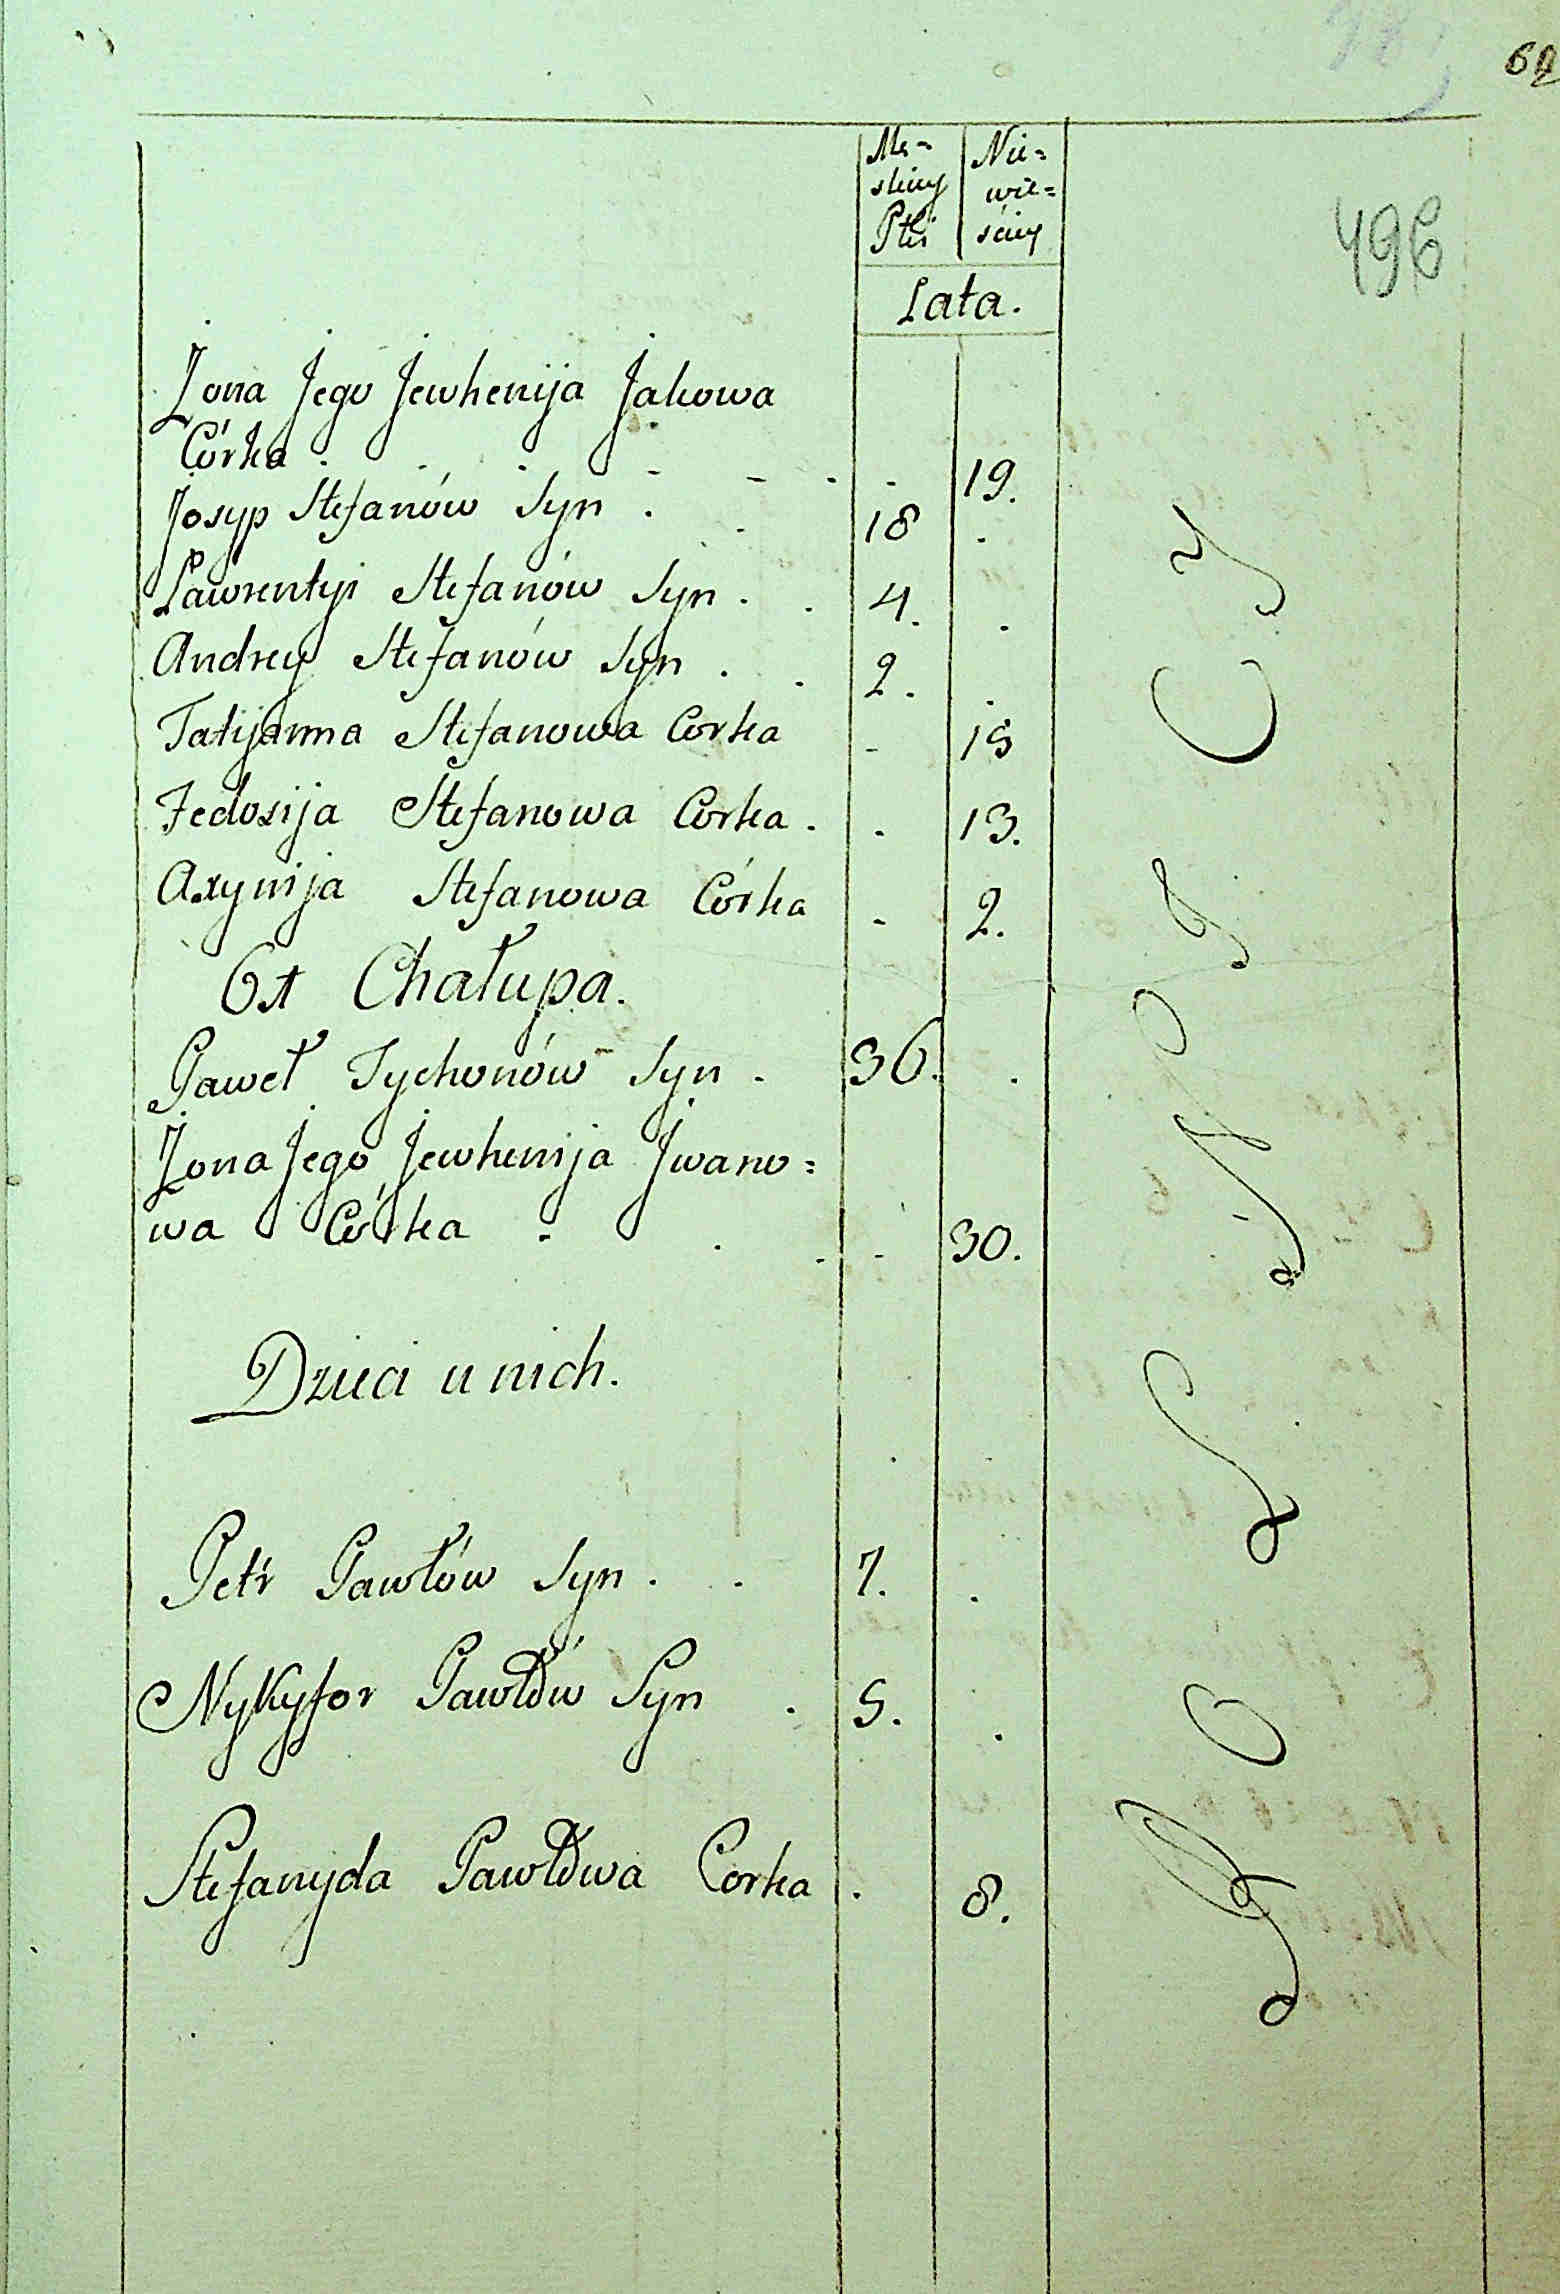 62
496
Męskiey Płci
Niewieściey
Lata.
Żona Jego Jewhenija Jakowa
Córka . . . - - . - 19.
Josyp Stefanów Syn . . 18 .
Ławrentyi Stefanów Syn . . 4. .
Andrey Stefanów Syn . . 2. .
Tatijanna Stefanowa Corka - 15
Fedosija Stefanowa Corka . . 13.
Axynija Stefanowa Córka - 2.
6t Chałupa.
Paweł Tychonów Syn . 36. .
Żona Jego Jewhenija Jwano=
wa Córka . . . - 30.
Dzieci u nich.
Petr Pawłów Syn . . 7. .
Nykyfor Pawłów Syn . 5. .
Stefanyda Pawłowa Corka . 8.
ROLNICY